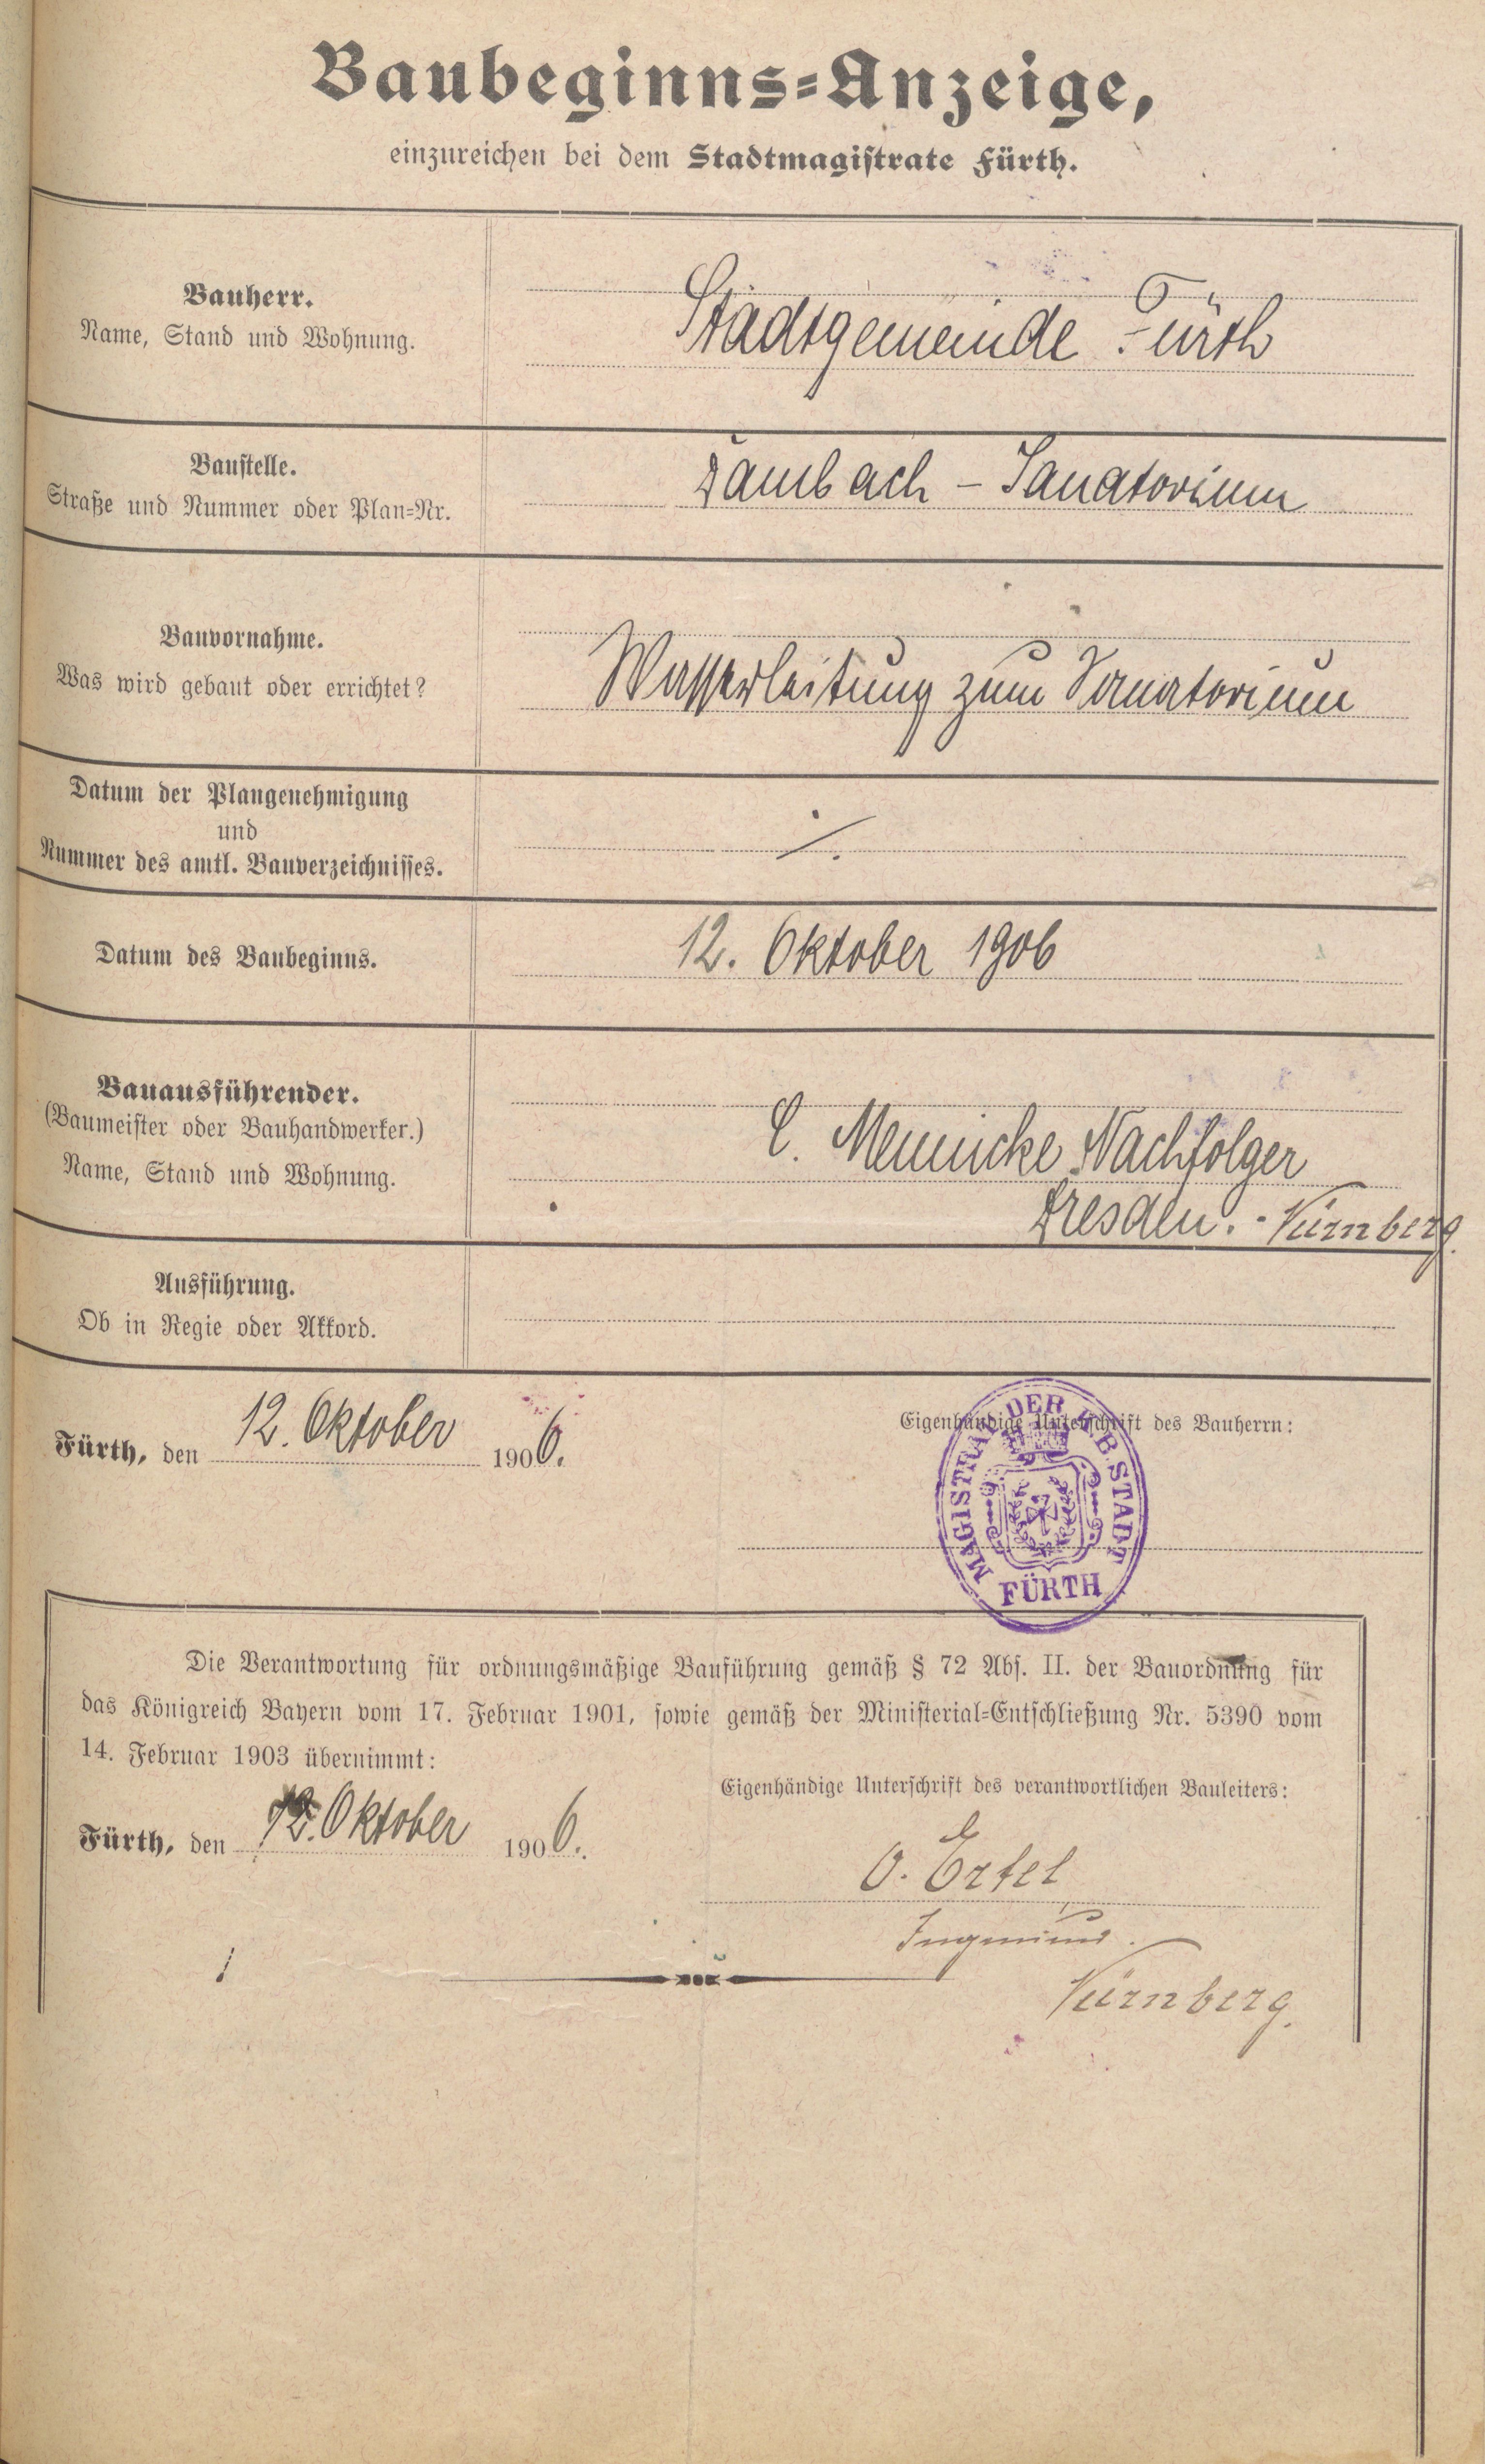 Baubeginns-Anzeige,
einzureichen bei dem Stadtmagistrate Fürth.
Bauherr.
Name, Stand und Wohnung.
Stadtgemeinde Fürth
Baustelle.
Straße und Nummer oder Plan-Nr.
Dambach - Sanatorium
Bauvornahme.
Was wird gebaut oder errichtet?
Wasserleitung zum Sanatorium
Datum der Plangenehmigung
und
Nummer des amtl. Bauverzeichnisses.
·/.
Datum des Baubeginns.
12. Oktober 1906
Bauausführender.
(Baumeister oder Bauhandwerker.)
Name, Stand und Wohnung.
C. Mennicke Nachfolger
Dresden. - Nürnberg.
Ausführung.
Ob in Regie oder Akkord.
Fürth, den 12. Oktober 1906.
Eigenhändige Unterschrift des Bauherrn:
MAGISTRAT DER K.B. STADT
FÜRTH
Die Verantwortung für ordnungsmäßige Bauführung gemäß § 72 Abs. II. der Bauordnung für
das Königreich Bayern vom 17. Februar 1901, sowie gemäß der Ministerial-Entschließung Nr. 5390 vom
14. Februar 1903 übernimmt:
Eigenhändige Unterschrift des verantwortlichen Bauleiters:
Fürth, den 12. Oktober 1906.
O. Ertel
Ingenieur.
Nürnberg.